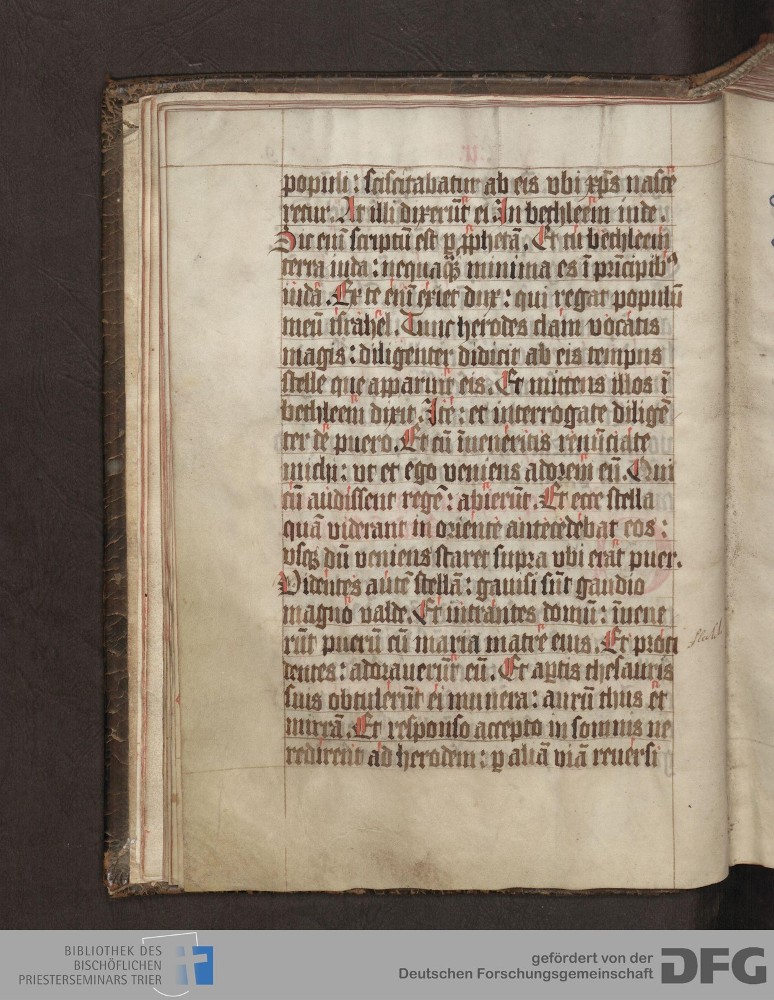 populi : sciscitabatur ab eis vbi xp̄s nasce
retur. At illi dixerūt ei In bethleem iude.
Sic enī scriptū est ꝑ ꝓphetā. Et tu bethleem
terra iuda : nequaqͣꝫ minima es ī prīcipibꝰ
iuda. Ex te enī exiet dux : qui regat populū
meū israhel. Tunc herodes clam vocatis
magis : diligenter didicit ab eis tempus
stelle que apparuit eis. Et mittens illos ī
bethleem dixit. Ite : et interrogate diligē
ter de puero. Et cū īueneritis renūciate
michi : vt et ego veniens adorem eū. Qui
cū audissent regē : abierūt. Et ecce stella
quā viderant in oriente antecedebat eos :
vsqꝫ dū veniens staret supra vbi erat puer.
Videntes autē stellā : gauisi sūt gaudio
magno valde. Et intrantes domū : īuene
rūt puerū cū maria matre eius. Et proci
dentes : adorauerūt eū. Et aꝑtis thesauris
suis obtulerūt ei munera : aurū thus et
mirrā. Et responso accepto in somnis ne
redirent ad herodem : ꝑ aliā viā reuersi
BIBLIOTHEK DES
BISCHÖFLICHEN
PRIESTERSEMINARS TRIER
gefördert von der
Deutschen Forschungsgemeinschaft
DFG